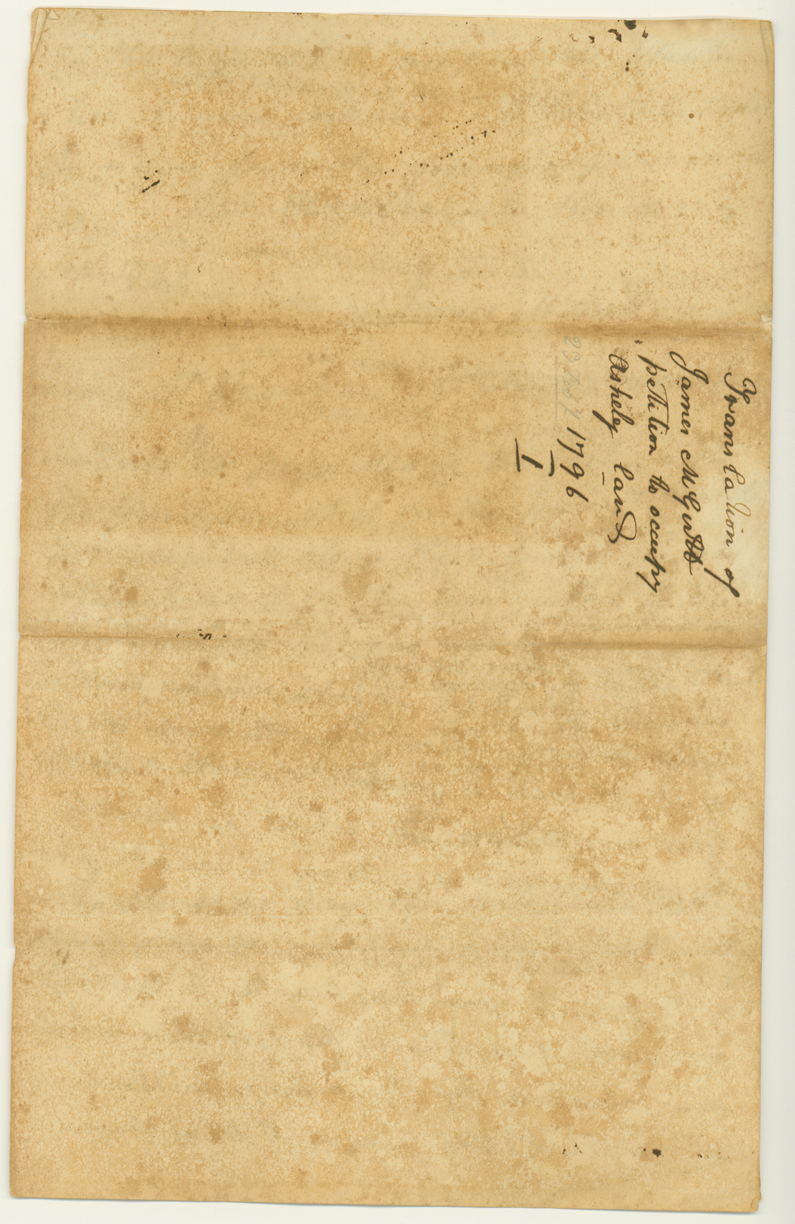 Translation of
James McGirtt
petition to occupy
Ashely land
1796
1